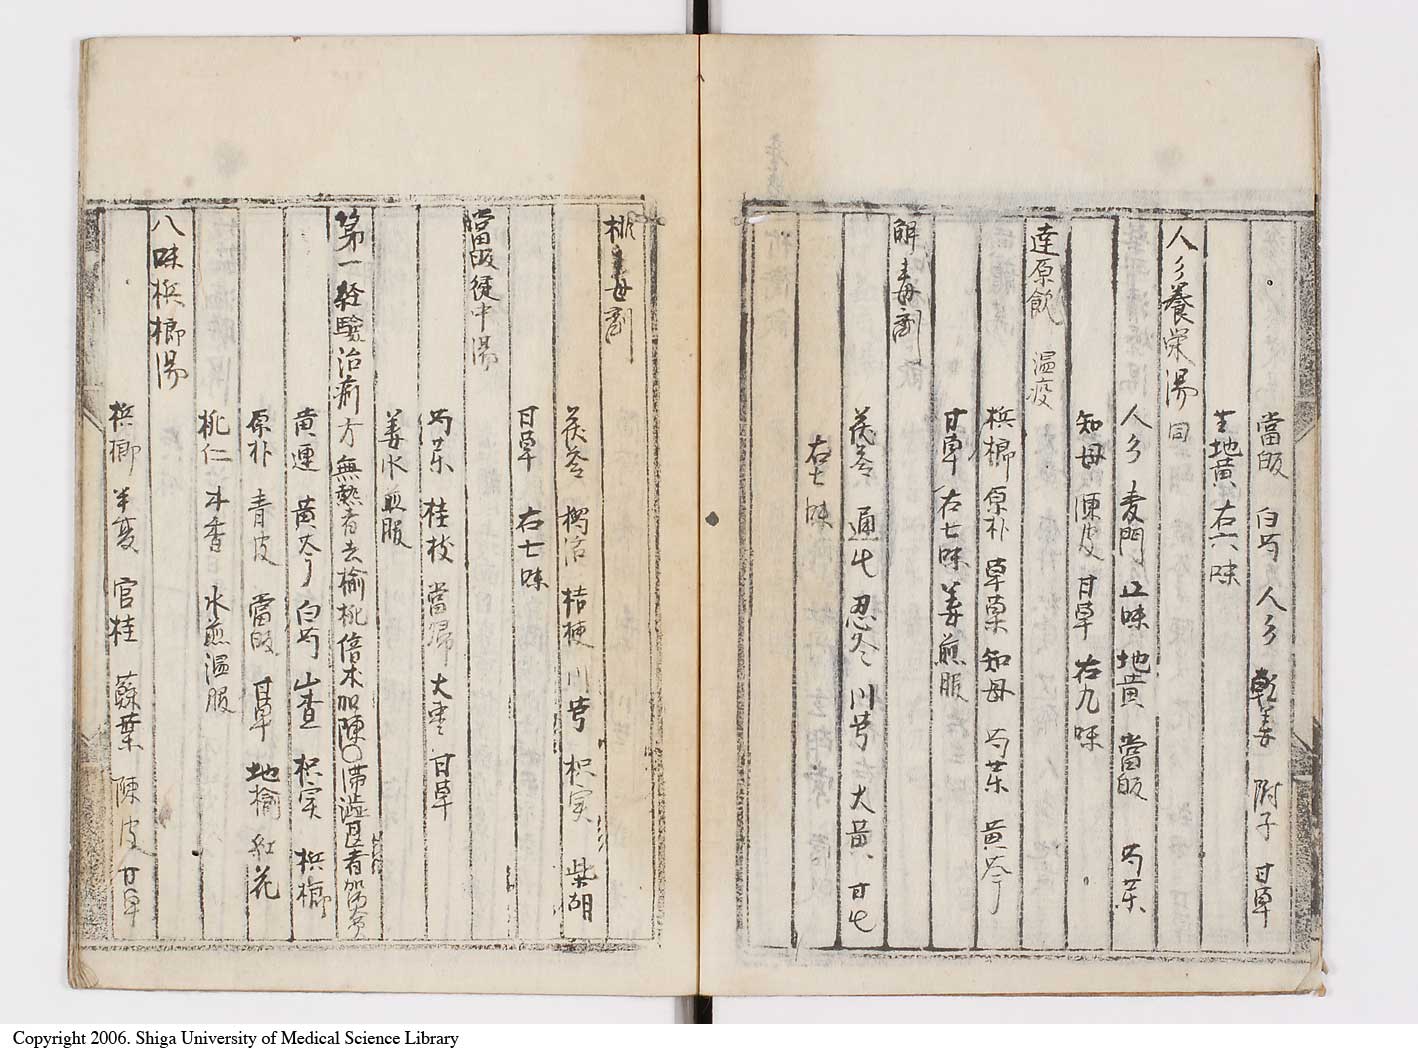 當皈 白芍 人參 乾姜 附子 甘草
生地黄 右六味
人參養栄湯 同
人參 麦門 五味 地黄 當皈 芍薬
知母 陳皮 甘草 右九味
達原飲 温疫
梹榔 原朴 草菓 知母 芍薬 黄芩
甘草 右七味 姜煎服
解毒剤
茯苓 通 忍冬 川芎 大黄 甘
右七味
毒剤
茯苓 獨活 桔梗 川芎 枳実 柴胡
甘草 右七味
當皈建中湯
芍薬 桂枝 當帰 大枣 甘草
姜水煎服
第一経驗治痢方 無熱者去榆桃倍木加陳〇滞澁甚者加
黄連 黄芩 白芍 山査 枳実 梹榔
原朴 青皮 當皈 甘草 地榆 紅花
桃仁 木香 水煎温服
八味梹榔湯
梹榔 半夏 官桂 蘇葉 陳皮 甘草
Copyright 2006. Shiga University of Medical Science Library